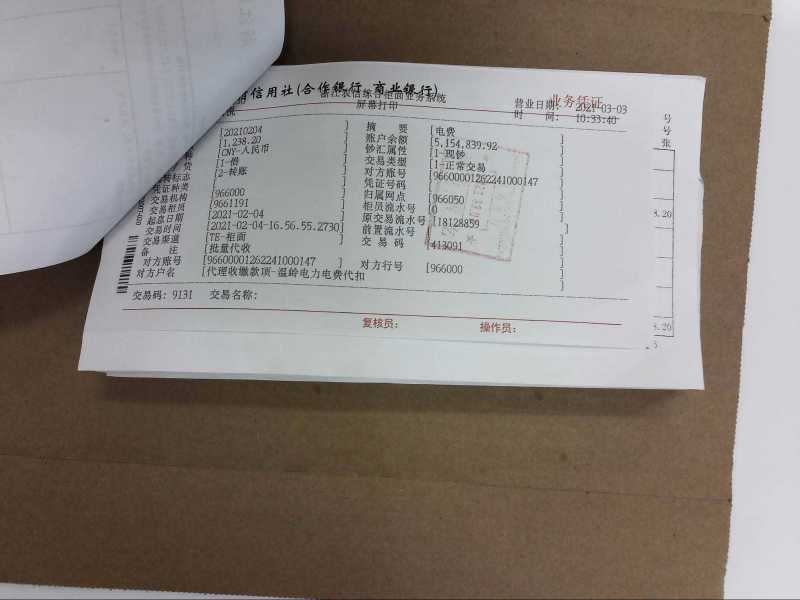 信用社(合作银行 商业银行)
业务凭证
浙江农信综合柜面业务系统
屏幕打印
营业日期: 2021-03-03
时 间: 10:33:40
号
号
张
[20210204 ] 摘 要 [电费 ]
[1,238.20 ] 账户余额 [5,154,839.92 ]
[CNY-人民币 ] 钞汇属性 [1-现钞 ]
标志 [1-借 ] 交易类型 [1-正常交易 ]
凭证种类 [2-转账 ] 对方账号 [966000001262241000147 ]
凭证号码 [ ]
交易机构 [966000 ] 归属网点 [966050 ]
交易柜员 [9661191 ] 柜员流水号 [0 ]
起息日期 [2021-02-04 ] 原交易流水号 [18128859 ]
交易时间 [2021-02-04-16.56.55.2730] 前置流水号 [ ]
交易渠道 [TE-柜面 ] 交 易 码 [413091 ]
备 注 [批量代收 ]
对方账号 [966000001262241000147 ] 对方行号 [966000 ]
对方户名 [代理收缴款项-温岭电力电费代扣 ]
交易码: 9131 交易名称:
复核员: 操作员:
8.20
8.20